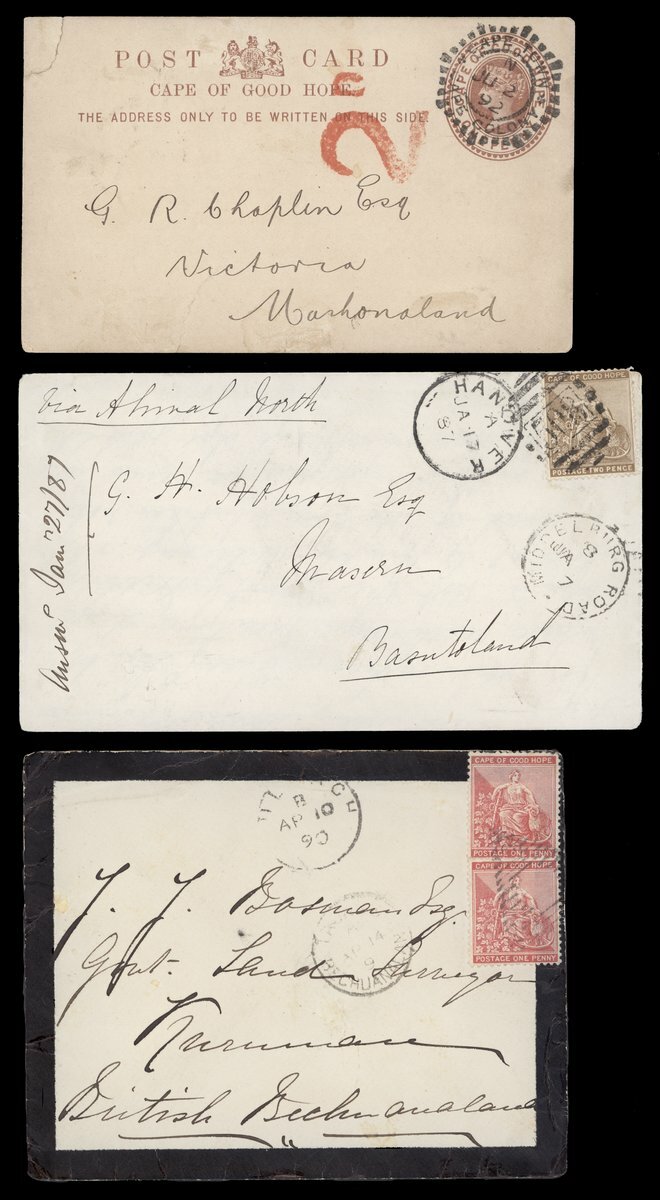 POST CARD
CAPE OF GOOD HOPE.
THE ADDRESS ONLY TO BE WRITTEN ON THIS SIDE.
CAPE TOWN
N
JU 2
92
COLONY
CAPE OF GOOD HOPE
2
G. R. Chaplin Esq
Victoria
Mashonaland
via Aliwal North
HANOVER
A
JA 17
87
CAPE OF GOOD HOPE
POSTAGE TWO PENCE
G. H. Hobson Esq
Maseru
Basutoland
Answd Jany 27/87
MIDDELBURG ROAD
JA
8
7
B
AP 10
90
CAPE OF GOOD HOPE
POSTAGE ONE PENNY
CAPE OF GOOD HOPE
POSTAGE ONE PENNY
J. J. Bosman Esq.
Govt. Land Surveyor
Kuruman
British Bechuanaland
AP 14